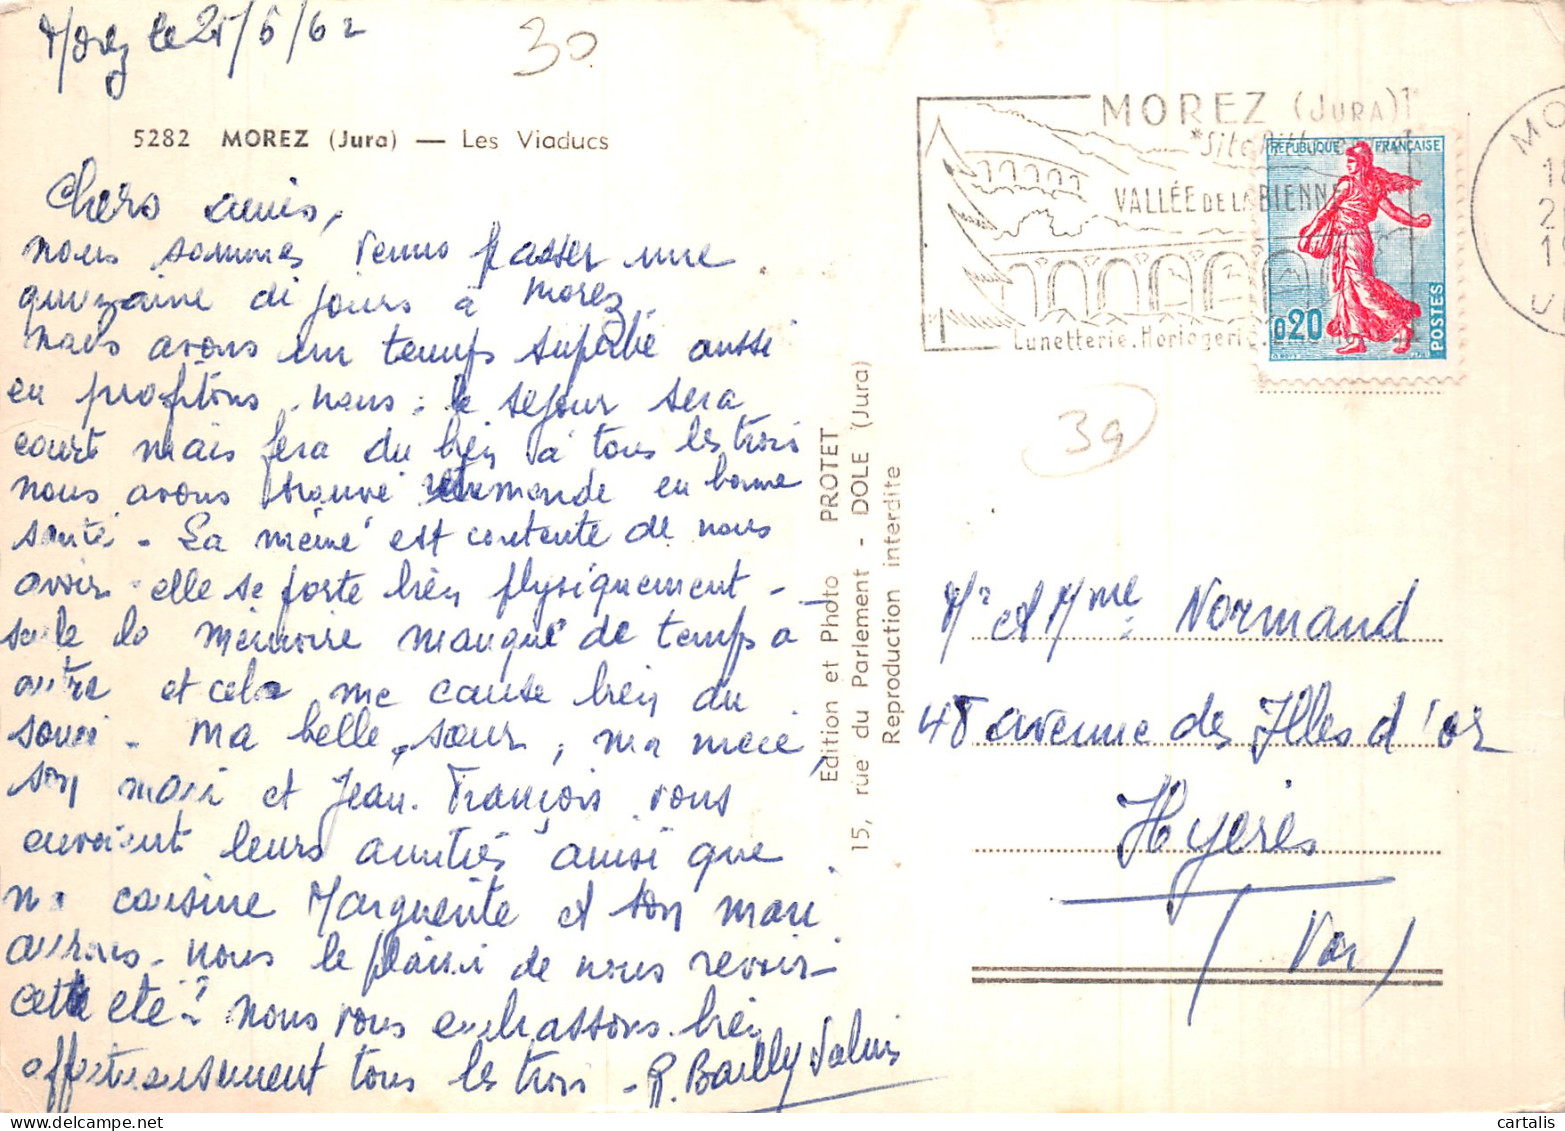 Morez le 25/6/62
30
5282 MOREZ (Jura) — Les Viaducs
Chers amis,
nous sommes venus passer une
quinzaine de jours à Morez
nous avons un temps superbe aussi
en profitons-nous : le séjour sera
court mais fera du bien à tous les trois
nous avons trouvé monde en bonne
santé - La mémé est contente de nous
avoir - elle se porte bien physiquement -
seule la mémoire manque de temps à
autre et cela me cause bien du
souci - Ma belle-sœur, ma mère,
son mari et Jean-François vous
envoient leurs amitiés ainsi que
ma cousine Marguerite et son mari
aurons-nous le plaisir de nous revoir
cette été ? nous vous embrassons bien
affectueusement tous les trois - R. Bailly
Edition et Photo PROTET
15, rue du Parlement - DOLE (Jura)
Reproduction interdite
MOREZ (JURA)
*Site Pitt
VALLÉE DE LA BIENNE
Lunetterie. Horlogerie.
REPUBLIQUE FRANÇAISE
0,20
POSTES
MO
18
2
19
39
Mr et Mme Normand
48 avenue des Illes d'or
Hyères
(Var)
cartalis